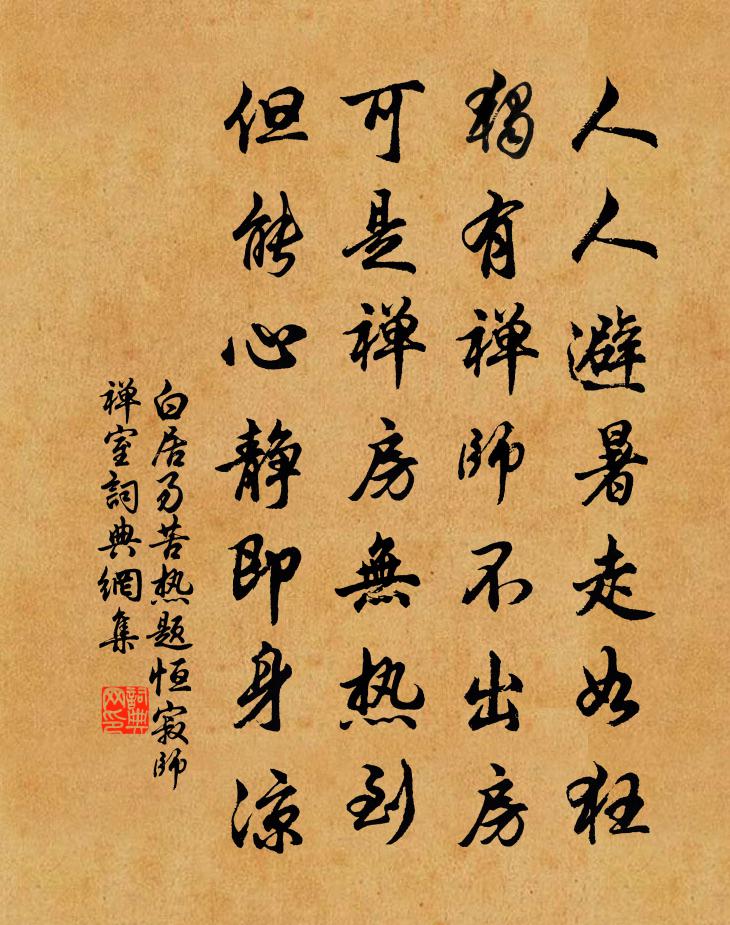 人人避暑走如狂
獨有禅師不出房
可是禅房無热到
但能心静即身凉
白居易苦热题恒寂師
禅室詞典網集
詞典网印